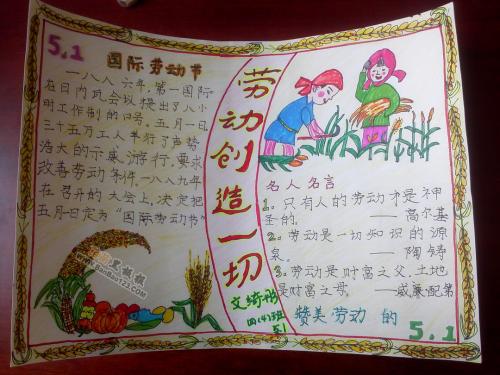 5.1
国际劳动节
一八八六年，第一国际
在日内瓦会议提出了八小
时工作制的口号。五月一日，
三十五万工人举行了声势
浩大的示威游行，要求
改善劳动条件。一八八九年
在召开的大会上，决定把
五月一日定为“国际劳动节”
劳动创造一切
四(4)班
5.1
名人名言
1。只有人的劳动才是神
圣的。 ——高尔基
2。劳动是一切知识的源
泉。 ——陶铸
3。劳动是财富之父，土地
是财富之母。 ——威廉·配第
赞美劳动的
5.1